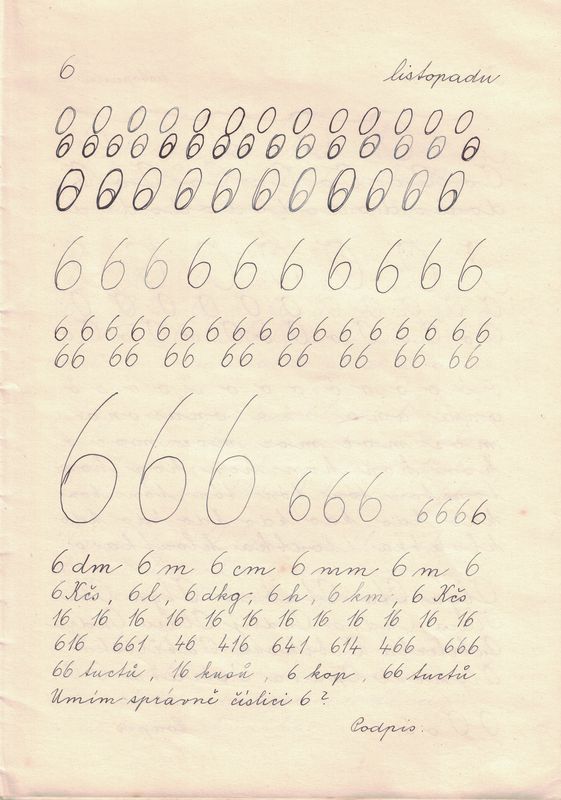 6 listopadu
0 0 0 0 0 0 0 0 0 0 0 0
6 6 6 6 6 6 6 6 6 6 6 6 6 6 6 6
6 6 6 6 6 6 6 6 6 6 6
6 6 6 6 6 6 6 6 6 6
6 6 6 6 6 6 6 6 6 6 6 6 6 6 6 6 6 6
66 66 66 66 66 66 66 66
666 666 6666
6 dm 6 m 6 cm 6 mm 6 m 6
6 Kčs, 6 l, 6 dkg, 6 h, 6 km, 6 Kčs
16 16 16 16 16 16 16 16 16 16 16 16
616 661 46 416 641 614 466 666
66 tuctů, 16 kusů, 6 kop, 66 tuctů
Umím správně číslici 6?
Podpis.